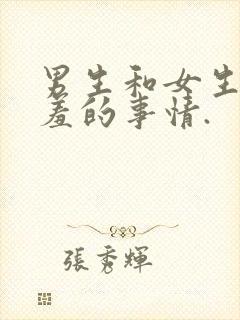 男生和女生
羞的事情.
張秀輝